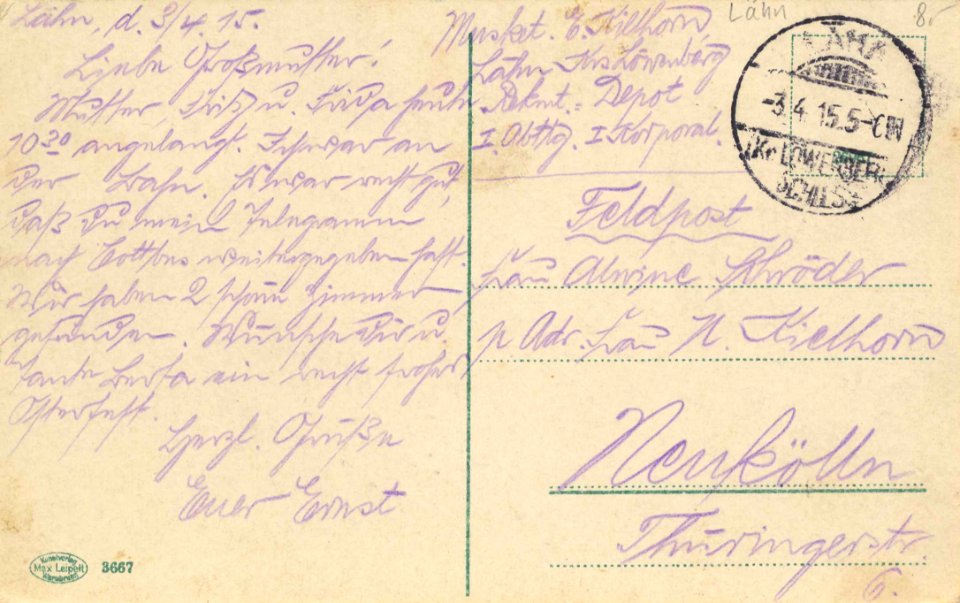 Lähn, d. 3/4. 15.
Liebe Großmutter!
Mutter Fritz u. Frida heute
10³⁰ angelangt. Ich war an
der Bahn. Es war recht gut,
daß Du mein Telegramm
nach Cottbus weitergegeben hast.
Wir haben 2 schöne Zimmer
gefunden. Wünsche Dir u.
Tante Berta ein recht frohes
Osterfest.
Herzl. Grüße
Euer Ernst
Musket. E. Kielhorn
Lähn Krs Löwenberg
Rekrut.-Depot
I. Abttlg. I. Korporal.
Feldpost
Frau Alwine Schröder
p Adr. Frau N. Kielhorn
Neukölln
Thüringerstr.
6.
Lähn
8.-
LÄHN
-3.4.15.5-6N
(Kr. LÖWENBERG
SCHLES.)
Kunstverlag
Max Leipelt
Warmbrunn
3667